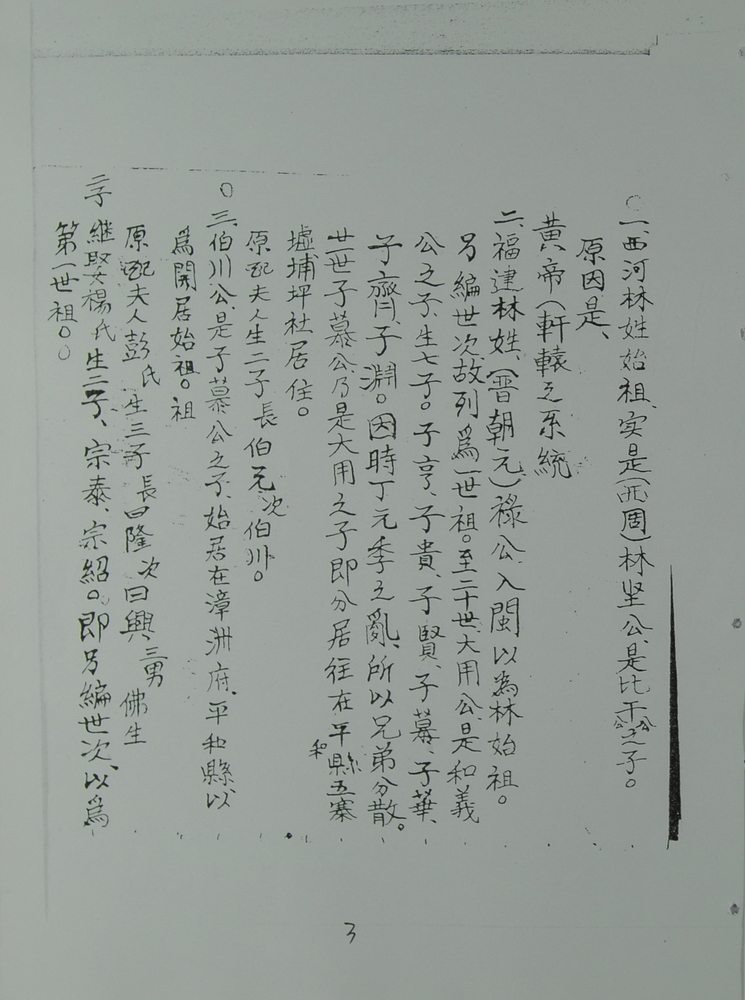 ○一、西河林姓始祖、实是(西周)林坚公、是比干公之子。
原因是、
黃帝(軒轅之系統
二、福建林姓、(晋朝元)祿公、入閩以為林始祖。
另編世次、故列爲一世祖。至二十世、大用公、是和義
公之子、生七子。子亨、子貴、子賢、子慕、子華、
子齊、子淵。因時丁元季之亂、所以兄弟分散。
廿一世子慕公乃是大用之子即分居往在平和縣五寨
墟埔坪社居住。
原配夫人生二子長伯元次伯川。
○三、伯川公、是子慕公之子、始居在漳洲府、平和縣以
爲開居始祖。祖
原配夫人彭氏生三子長曰隆次曰興、三男佛生
二字継娶楊氏生二子、宗泰、宗紹。即另編世次、以爲
第一世祖。○
3